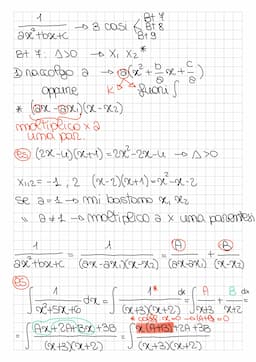 1/(ax²+bx+c) → 3 casi < Bt 7 Bt 8 Bt 9
Bt 7: Δ>0 → x₁ x₂ *
→ raccolgo a → a(x² + b/a x + c/a)
oppure K fuori ∫
* (ax-ax₁)(x-x₂)
moltiplico x a
una par.
es (2x-4)(x+1) = 2x²-2x-4 → Δ>0
x₁,₂ = -1, 2 (x-2)(x+1) = x²-x-2
se a=1 → mi bastano x₁, x₂
" a≠1 → moltiplico a x una parentesi
1/(ax²+bx+c) = 1/((ax-ax₁)(x-x₂)) = A/(ax-ax₁) + B/(x-x₂)
es
∫ 1/(x²+5x+6) dx = ∫ 1/((x+3)(x+2)) dx = ∫ A/(x+3) + B/(x+2) dx =
= ∫ (Ax+2A+Bx+3B)/((x+3)(x+2)) = ∫ (x(A+B)+2A+3B)/((x+3)(x+2))